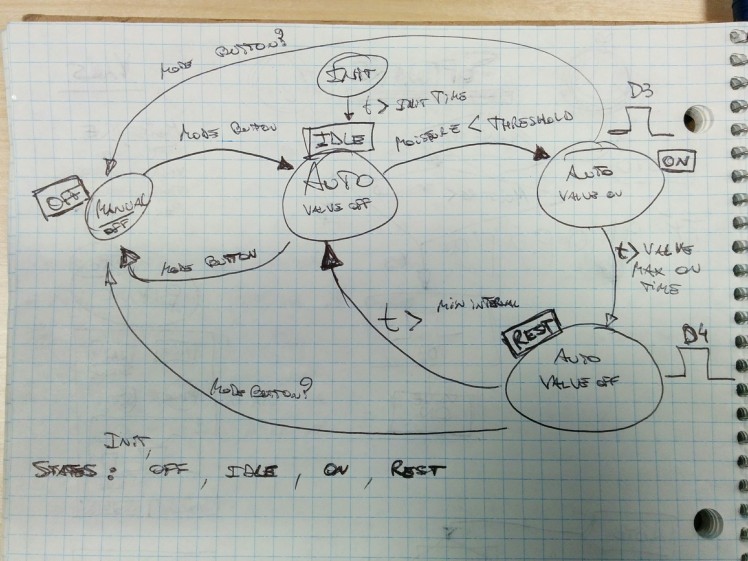 MODE BUTTON?
INIT
t > INIT TIME
D3
MODE BUTTON
IDLE
MOISTURE < THRESHOLD
OFF
MANUAL
OFF
AUTO
VALVE OFF
AUTO
VALVE ON
ON
MODE BUTTON
t > VALVE
MAX ON
TIME
t > MIN INTERVAL
REST
D4
AUTO
VALVE OFF
MODE BUTTON?
INIT,
STATES: OFF, IDLE, ON, REST